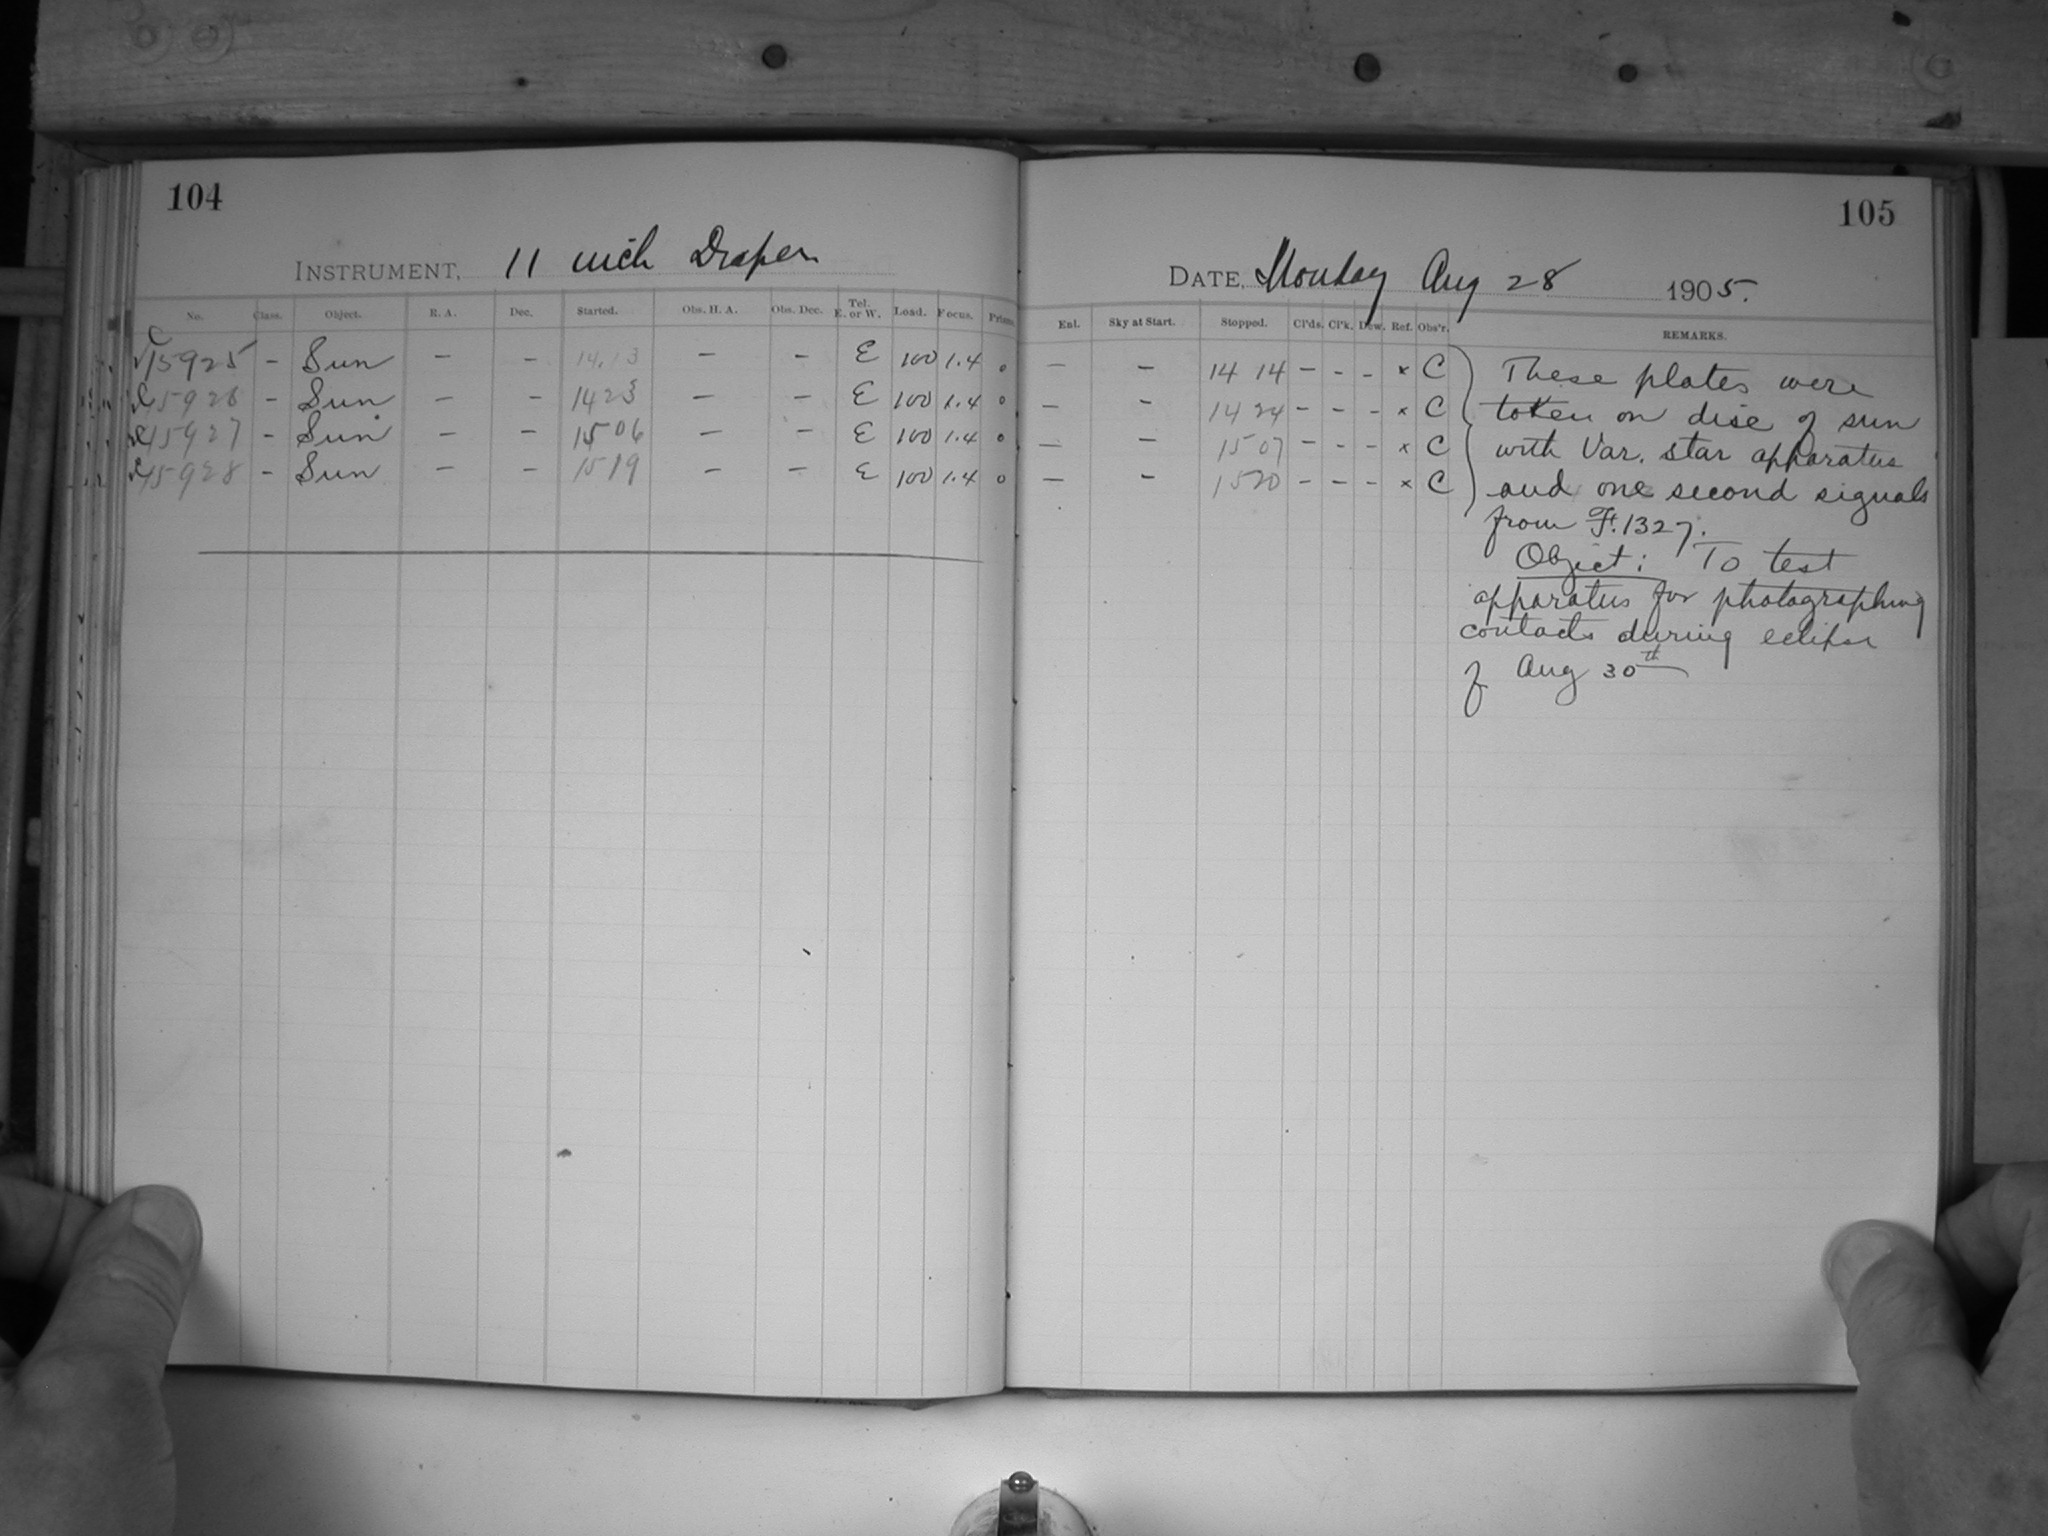 104
INSTRUMENT, 11 inch Draper
No. Class. Object. R. A. Dec. Started. Obs. H. A. Obs. Dec. Tel. E. or W. Load. Focus. Prisms
C15925 - Sun - - 14.13 - - E 100 1.4 0
C15926 - Sun - - 14 23 - - E 100 1.4 0
C15927 - Sun - - 15 06 - - E 100 1.4 0
C15928 - Sun - - 15 19 - - E 100 1.4 0
105
DATE, Monday Aug 28 1905.
Enl. Sky at Start. Stopped. Cl'ds. Cl'k. Dew. Ref. Obs'r. REMARKS.
- - 14 14 - - - x C These plates were
- - 14 24 - - - x C taken on disc of sun
- - 15 07 - - - x C with Var. star apparatus
- - 15 20 - - - x C and one second signals
from F. 1327.
Object: To test
apparatus for photographing
contacts during eclipse
of Aug 30th